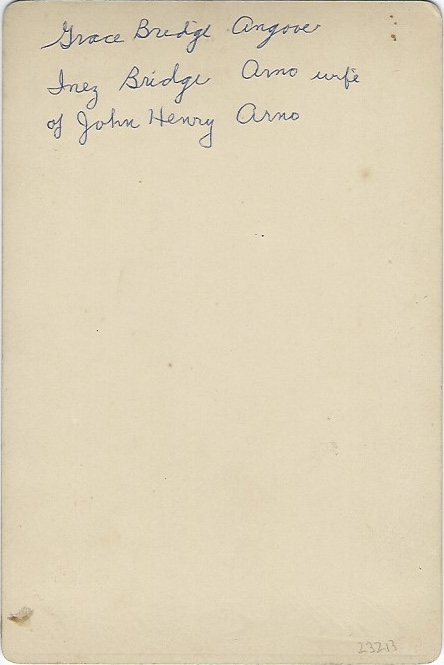 Grace Bridge Angove
Inez Bridge Arno wife
of John Henry Arno
23213